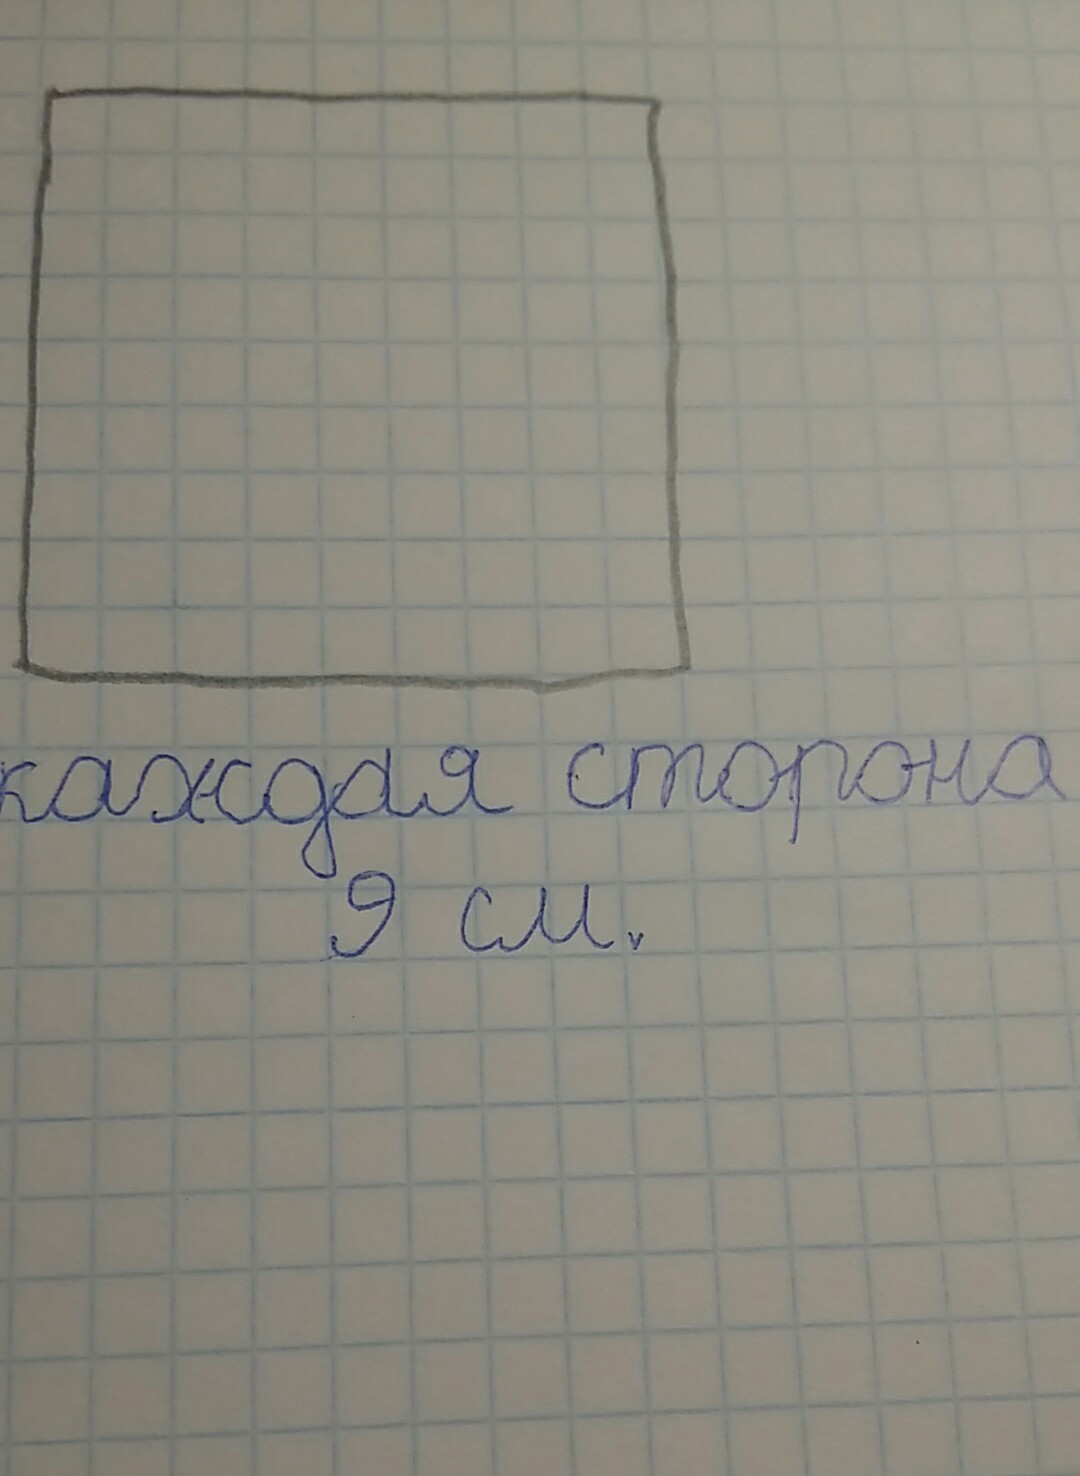 каждая сторона
9 см.